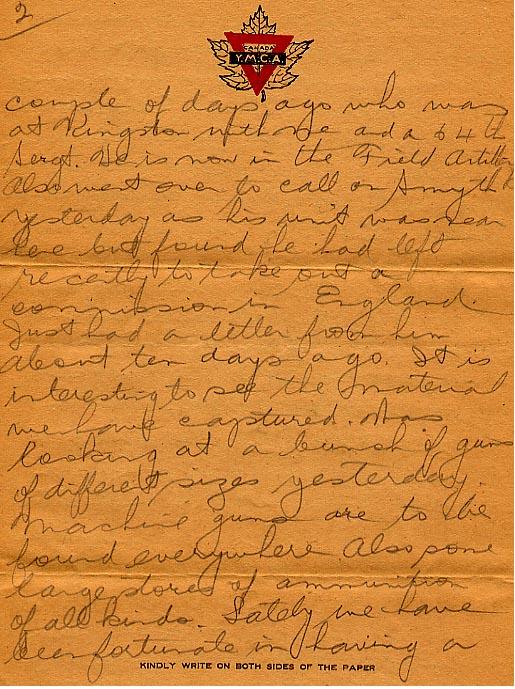 2
CANADA
Y.M.C.A.
couple of days ago who was
at Kingston with me and a 64th
Sergt. He is now in the Field Artillery
Also went over to call on Smyth
yesterday as his unit was near
here but found he had left
recently to take out a
commission in England.
Just had a letter from him
about ten days ago. It is
interesting to see the material
we have captured. Was
looking at a bunch of guns
of different sizes yesterday.
Machine guns are to be
found everywhere. Also some
large stores of ammunition
of all kinds. Lately we have
been fortunate in having a
KINDLY WRITE ON BOTH SIDES OF THE PAPER